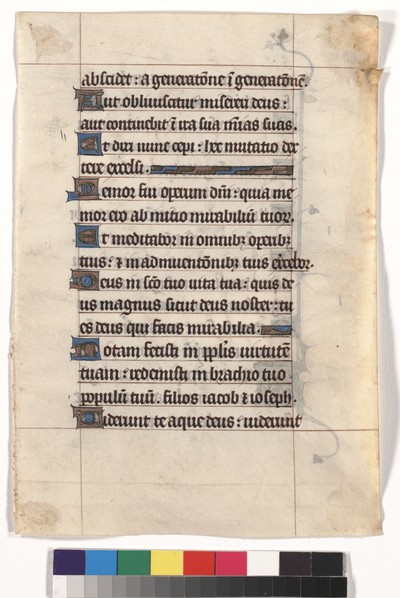 abscidet : a generatōne ī generatōnē.
Aut obliuiscetur misereri deus :
aut continebit ī ira sua mīas suas.
Et dixi nunc cepi : hec mutatio dex
tere excelsi.
Memor fui operum dn̄i : quia me
mor ero ab initio mirabiliū tuor.
Et meditabor in omnibꝫ operibꝫ
tuis : ⁊ in adinuentōnibꝫ tuis exercebor.
Deus in scō uia tua : quis de
us magnus sicut deus noster : tu
es deus qui facis mirabilia.
Notam fecisti in pplīs uirtutē
tuam : redemisti in brachio tuo
populū tuū. filios iacob ⁊ ioseph.
Uiderunt te aque deus : uiderunt